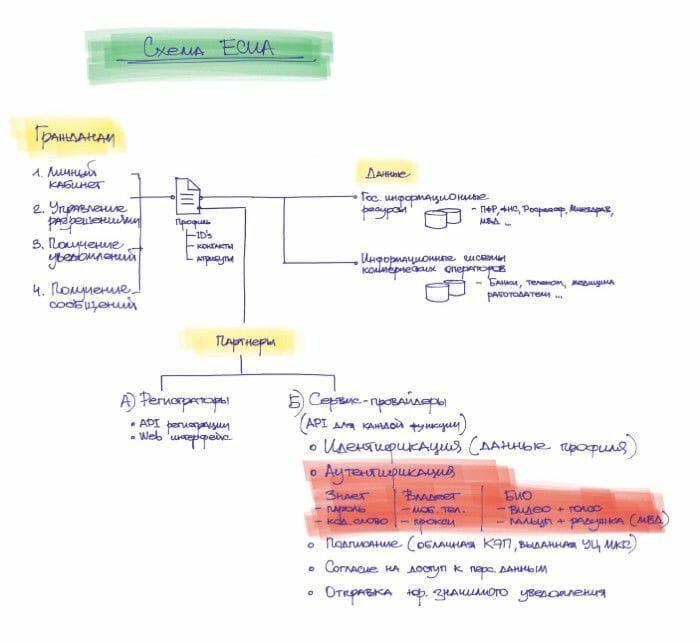 Схема ЕСИА
Гражданам
1. Личный
кабинет
2. Управление
разрешениями
3. Получение
уведомлений
4. Получение
сообщений
Профиль
ID's
контакты
атрибуты
Данные
Гос. информационные
ресурсы
- ПФР, ФНС, Росреестр, Минздрав,
МВД ...
Информационные системы
коммерческих операторов
- Банки, телеком, медицина
работодатели ...
Партнеры
А) Регистраторы
• API регистрации
• Web интерфейс
Б) Сервис-провайдеры
(API для каждой функции)
• Идентификация (данные профиля)
• Аутентификация
Знает
- пароль
- код. слово
Владеет
- моб. тел.
- прокси
БИО
- видео + голос
- пальцы + радужка (МВД)
• Подписание (облачная КЭП, выданная УЦ МКС)
• Согласие на доступ к перс. данным
• Отправка юр. значимого уведомления